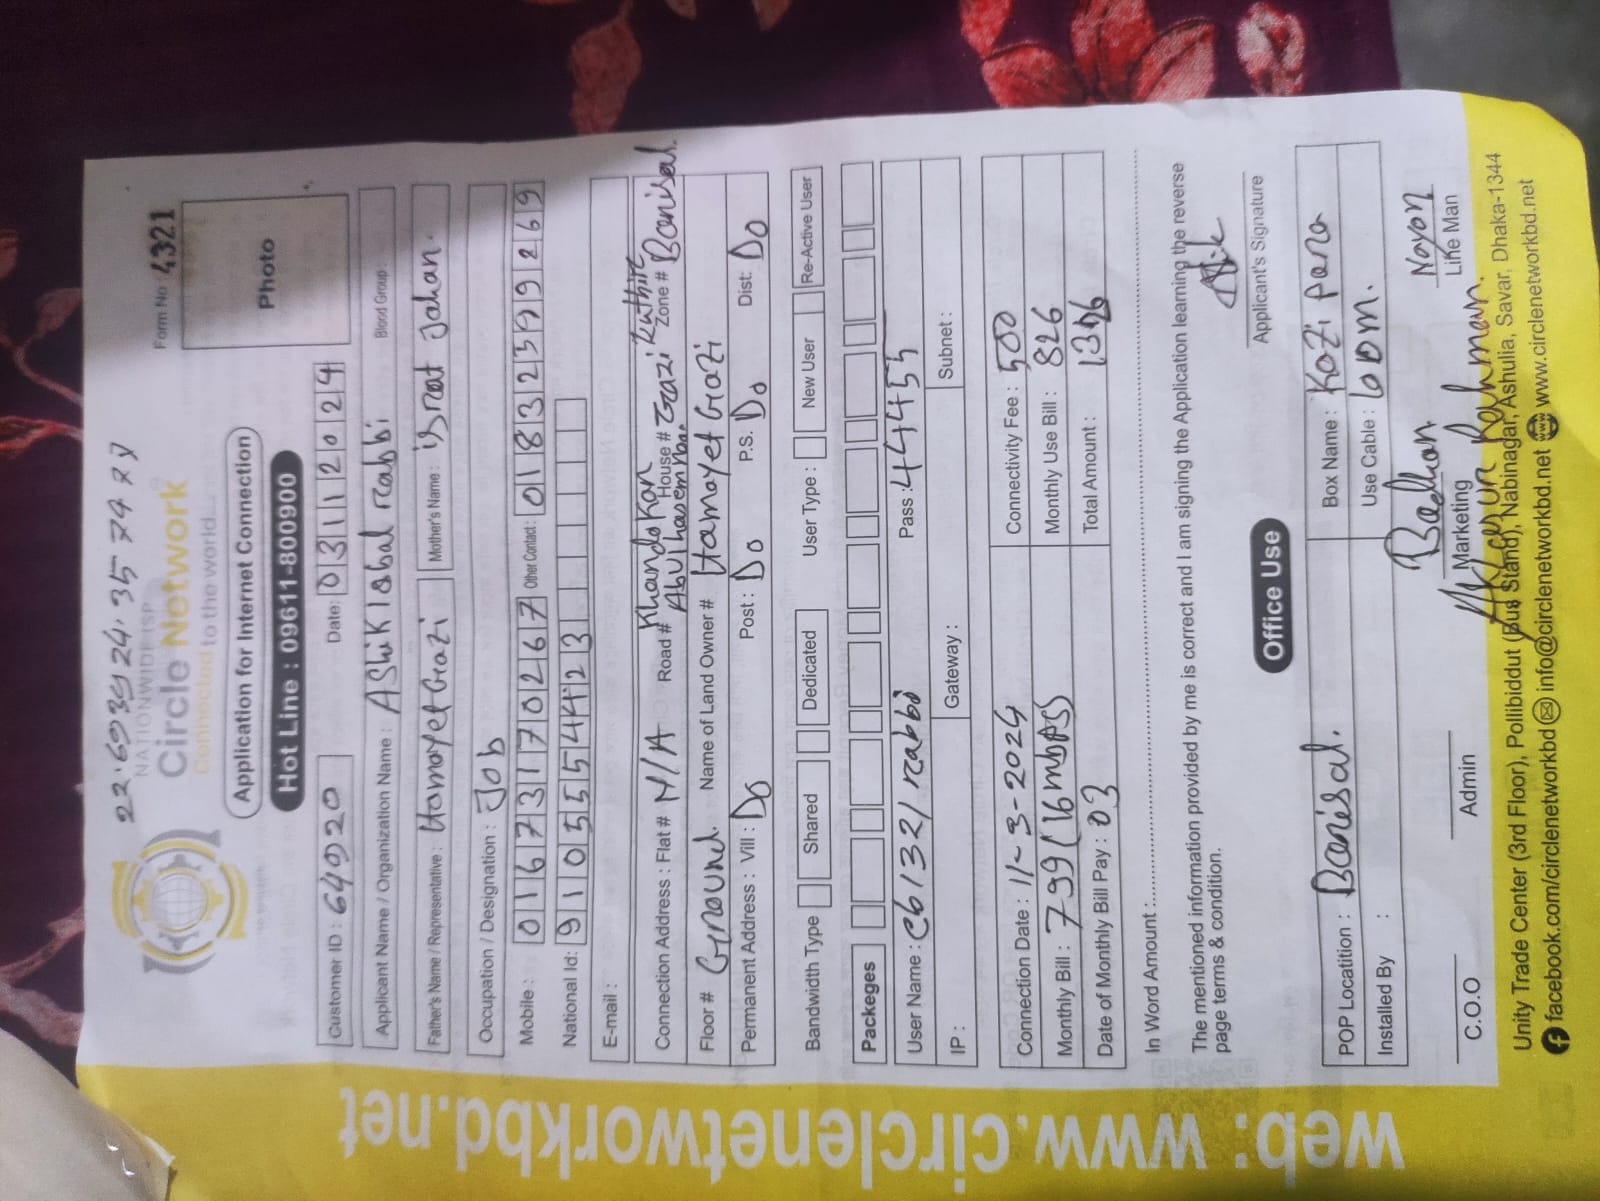 22.6939924, 35 74 77
NATIONWIDE ISP
Circle Network
Connected to the world....
Form No 4321
Photo
Application for Internet Connection
Hot Line : 09611-800900
Customer ID : 64920 Date: 03112024
Applicant Name / Organization Name : AShiK Iqbal rabbi Blood Group :
Father's Name / Representative : Hamayet Gazi Mother's Name : israt Jahan.
Occupation / Designation : Job
Mobile : 01673170267 Other Contact: 01832379269
National Id: 9105554423
E-mail :
Connection Address : Flat # N/A Road # Khandokar Abulhasem House # Gazi Kuthir Zone # Barisal.
Floor # Ground Name of Land Owner # Hamayet Gazi
Permanent Address : Vill : Do Post : Do P.S. Do Dist: Do
Bandwidth Type Shared Dedicated User Type : New User Re-Active User
Packeges
User Name : cb1321rabbi Pass : 444455
IP : Gateway : Subnet :
Connection Date : 11-3-2024 Connectivity Fee : 500
Monthly Bill : 799 (16mbps) Monthly Use Bill : 826
Date of Monthly Bill Pay : 03 Total Amount : 1326
In Word Amount :
The mentioned information provided by me is correct and I am signing the Application learning the reverse
page terms & condition.
Applicant's Signature
Office Use
POP Locatition : Barisal. Box Name : Kazi para
Installed By : Use Cable : 60m.
Badhon Noyon
C.O.O Admin Marketing Life Man
Rahman.
Unity Trade Center (3rd Floor), Pollibiddut (Bus Stand), Nabinagar, Ashulia, Savar, Dhaka-1344
facebook.com/circlenetworkbd info@circlenetworkbd.net www.circlenetworkbd.net
web: www.circlenetworkbd.net